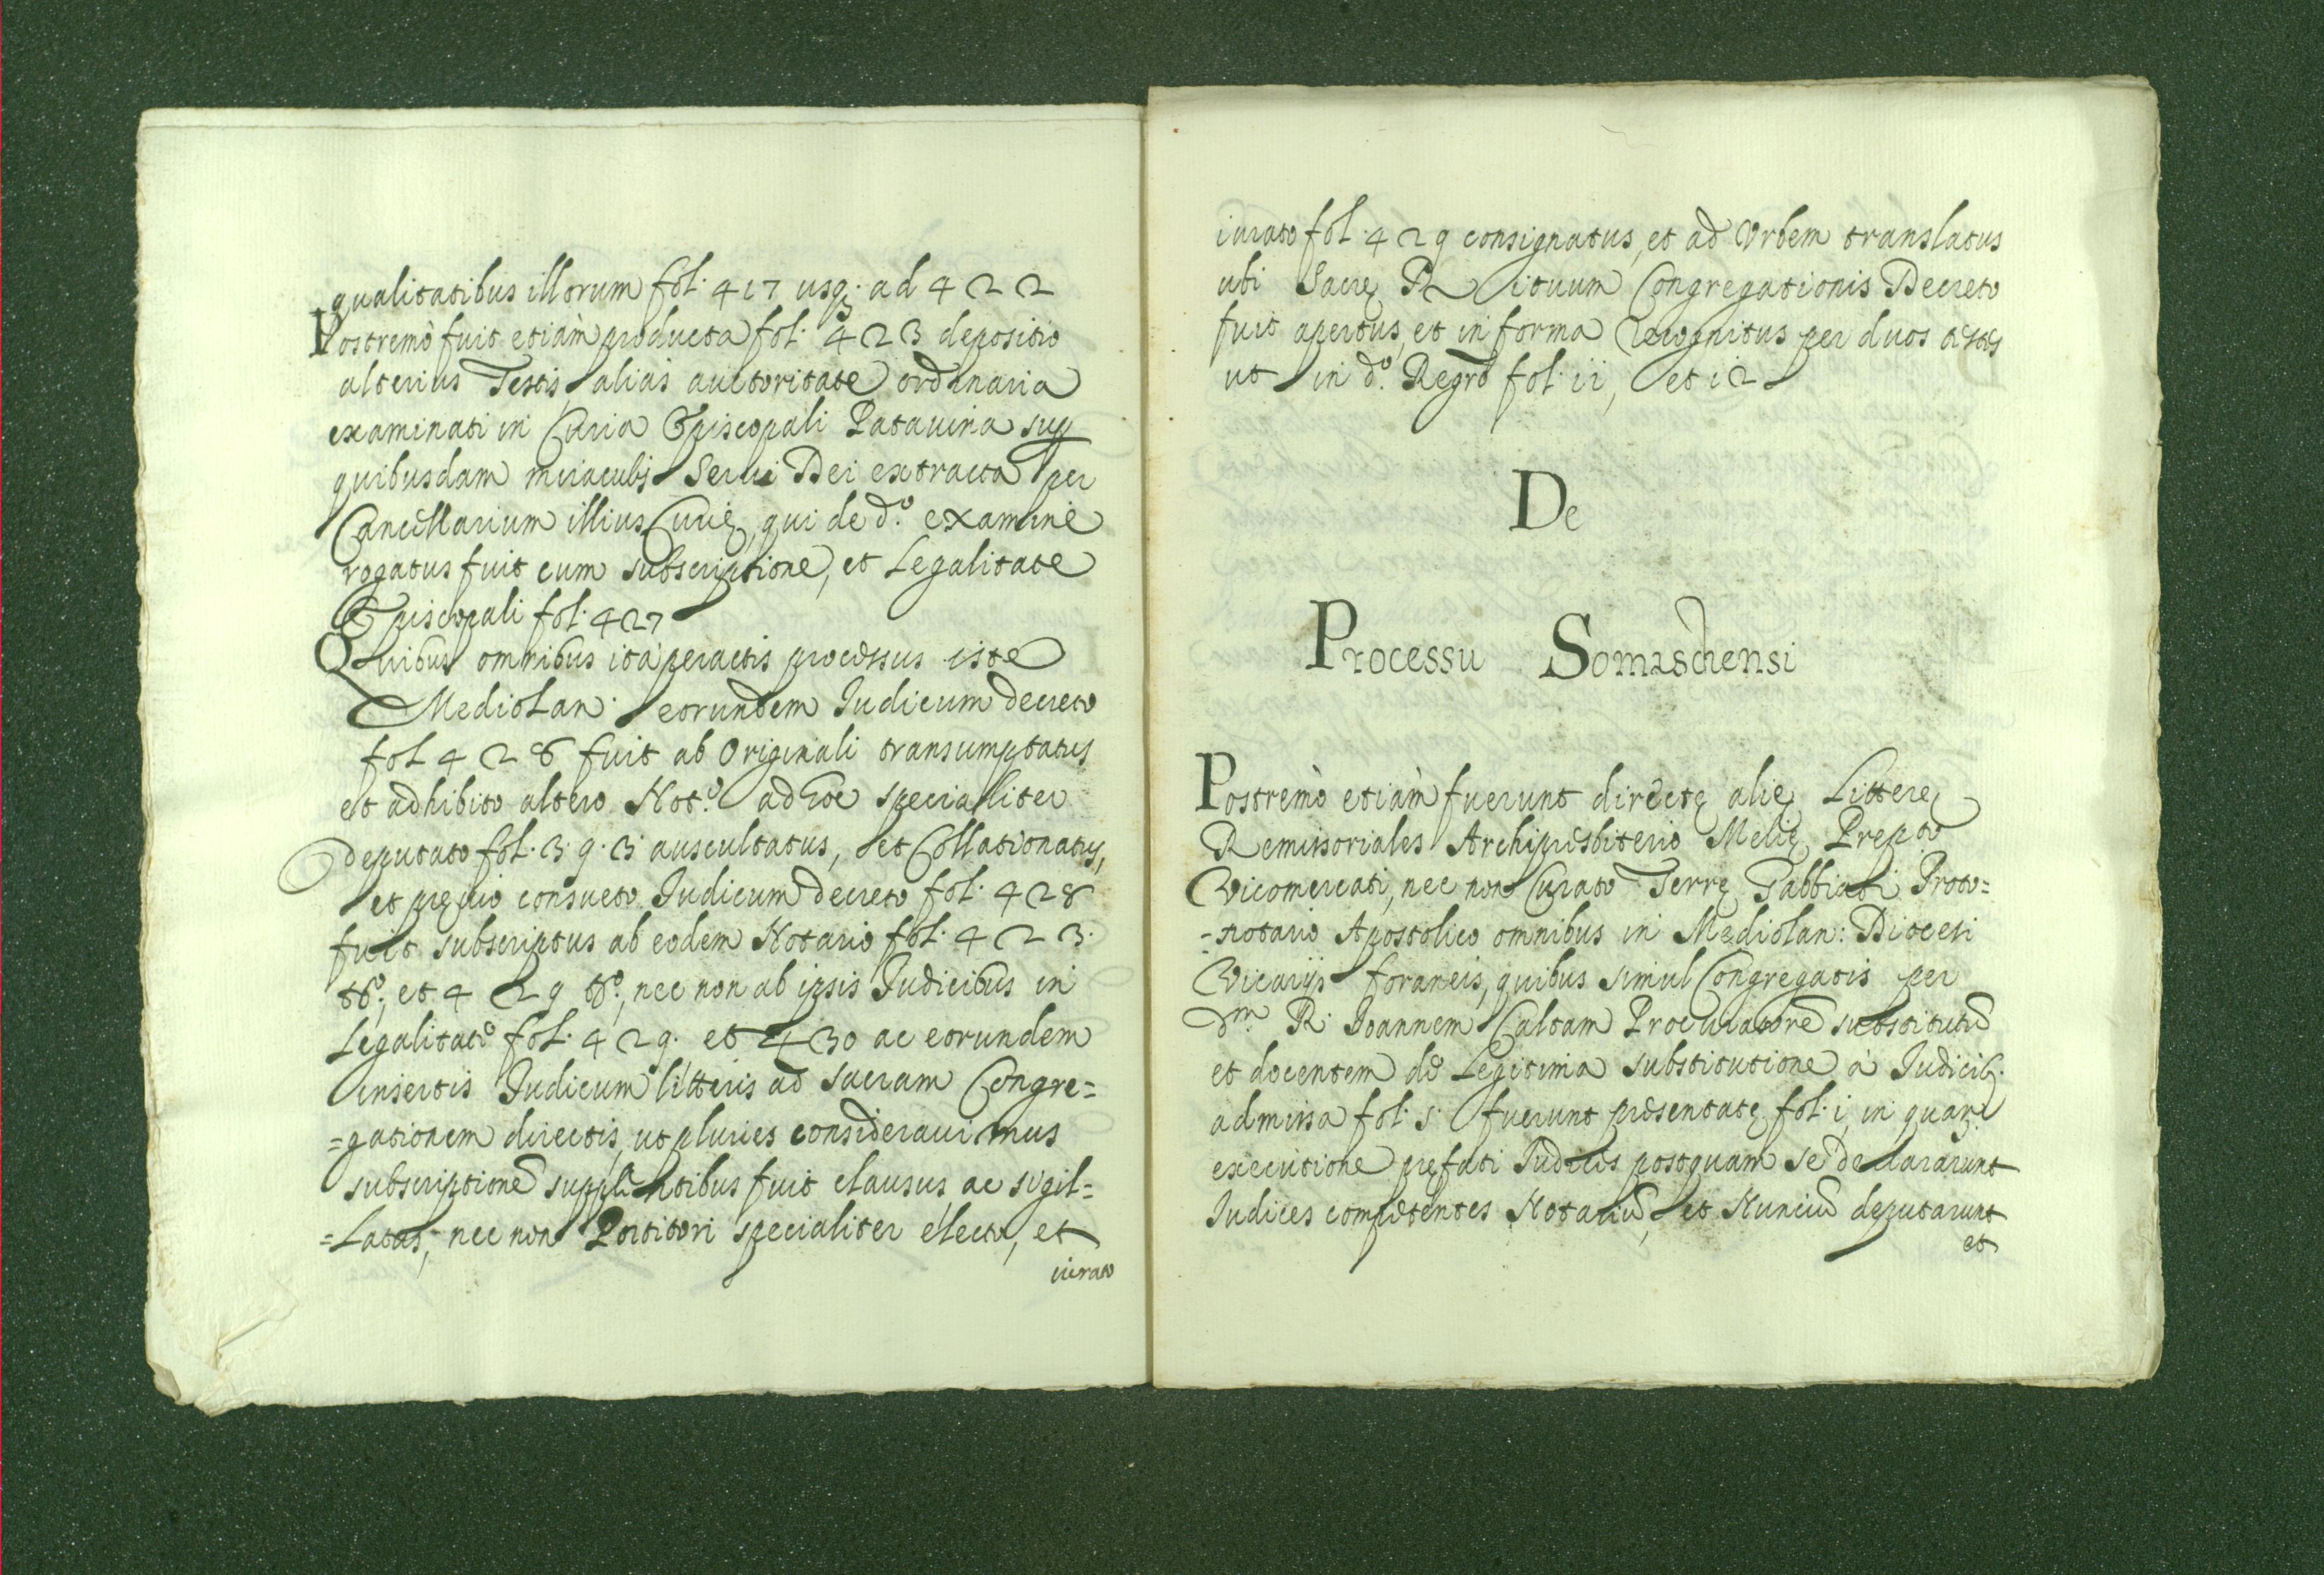 qualitatibus illorum fol. 417 usq. ad 422
Postremò fuit etiàm producta fol. 423 depositio
alterius Testis alias auctoritate ordinaria
examinati in Curia Episcopali Patauina sup
quibusdam miraculis Serui Dei extracta per
Cancillarium illius Curię, qui de d.º examine
rogatus fuit cum subscriptione, et Legalitate
Episcopali fol. 427
Quibus omnibus ità peractis processus iste
Mediolan. eorundem Iudicum decreto
fol 428 fuit ab Originali transumptatus
et adhibito altero Not.º ad hoc specialiter
deputato fol. 3.9.3 auscultatus, et Collationatus,
et pręuio consueto Iudicum decreto fol. 428
fuit subscriptus ab eodem Notario fol. 423.
tº; et 429 tº; nec non ab ipsis Iudicibus in
Legalitate fol. 429. et 430 ac eorundem
insertis Iudicum litteris ad sacram Congre=
=gationem directis, ut pluries considerauimus
subscriptione supplicantibus fuit clausus ac sigil=
=Latus, nec non Portitori specialiter electo, et
iurato
iurato fol. 429 consignatus, et ad Vrbem translatus
ubi Sacrę Rituum Congregationis Decreto
fuit apertus, et in forma recognitus per duos testes
ut in d.º Regro fol. ii, et i2
De
Processu Somaschensi
Postremò etiàm fuerunt directę alię Litterę
Remissoriales Archipresbitero Melię Prepto
Vicomercati, nec non Curato Terrę Gabbiati Proto=
-notario Apostolico omnibus in Mediolan: Diocesi
Vicarijs foraneis, quibus simul Congregatis per
Dm R. Ioannem Caltam Procuratorē substitutū
et docentem de Legitima substitutione à Iudicib.
admissa fol. 5. fuerunt presentatę fol. i, in quar.
executione pręfati Iudices postquam se declararunt
Iudices competentes Notariū, et Nunciū deputarunt
et